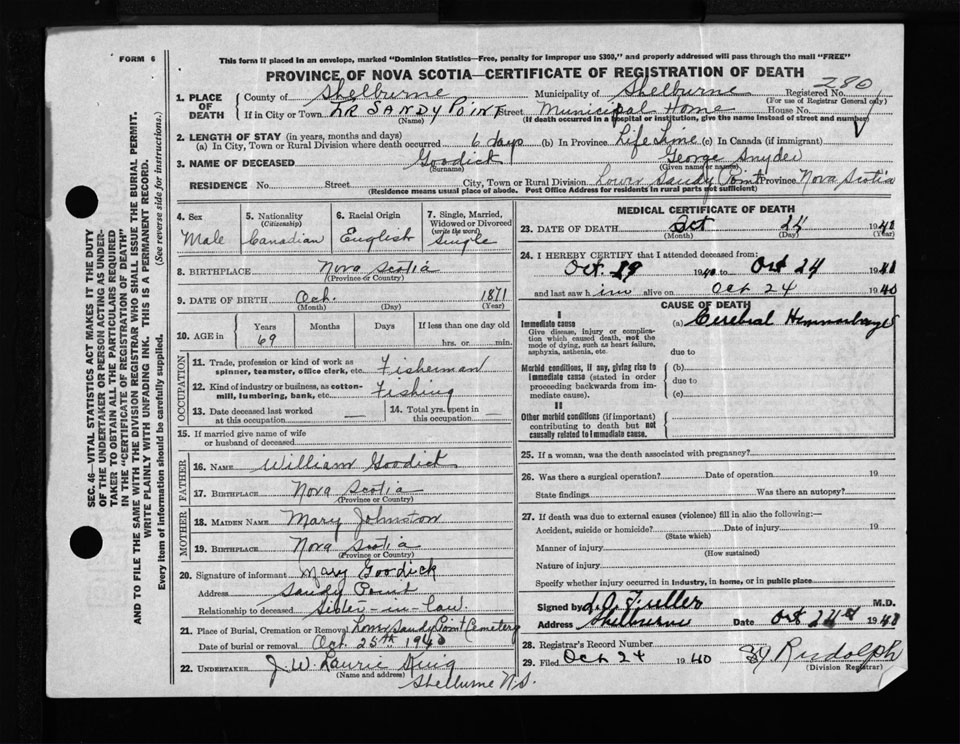 FORM 6
This form if placed in an envelope, marked "Dominion Statistics—Free, penalty for improper use $300," and properly addressed will pass through the mail "FREE"
PROVINCE OF NOVA SCOTIA—CERTIFICATE OF REGISTRATION OF DEATH
280
1. PLACE OF DEATH
County of Shelburne Municipality of Shelburne Registered No.
(For use of Registrar General only)
If in City or Town LR SANDY POINT Street Municipal Home House No.
(Name) (If death occurred in a hospital or institution, give the name instead of street and number)
2. LENGTH OF STAY (in years, months and days)
(a) In City, Town or Rural Division where death occurred 6 days (b) In Province Life Time (c) In Canada (if immigrant)
3. NAME OF DECEASED Goodick George Snyder
(Surname) (Given name or names)
RESIDENCE No. Street City, Town or Rural Division Lower Sandy Point Province Nova Scotia
(Residence means usual place of abode. Post Office Address for residents in rural parts not sufficient)
4. Sex
Male
5. Nationality (Citizenship)
Canadian
6. Racial Origin
English
7. Single, Married, Widowed or Divorced (write the word)
Single
8. BIRTHPLACE Nova Scotia
(Province or Country)
9. DATE OF BIRTH Oct. 1871
(Month) (Day) (Year)
10. AGE in Years Months Days If less than one day old
69 hrs. or min.
OCCUPATION
11. Trade, profession or kind of work as spinner, teamster, office clerk, etc. Fisherman
12. Kind of industry or business, as cotton-mill, lumbering, bank, etc. Fishing
13. Date deceased last worked at this occupation —
14. Total yrs. spent in this occupation —
15. If married give name of wife or husband of deceased
FATHER
16. NAME William Goodick
17. BIRTHPLACE Nova Scotia
(Province or Country)
MOTHER
18. MAIDEN NAME Mary Johnston
19. BIRTHPLACE Nova Scotia
(Province or Country)
20. Signature of informant Mary Goodick
Address Sandy Point
Relationship to deceased Sister-in-law.
21. Place of Burial, Cremation or Removal Lower Sandy Point Cemetery
Date of burial or removal Oct. 25th 1940
22. UNDERTAKER J. W. Laurie
(Name and address)
Shelburne N.S.
MEDICAL CERTIFICATE OF DEATH
23. DATE OF DEATH Oct 24 1940
(Month) (Day) (Year)
24. I HEREBY CERTIFY that I attended deceased from:
Oct. 19 1940 to Oct 24 1940
and last saw him alive on Oct 24 1940
CAUSE OF DEATH
I
Immediate cause
Give disease, injury or complication which caused death, not the mode of dying, such as heart failure, asphyxia, asthenia, etc.
(a) Cerebral Hemmorhage
due to
Morbid conditions, if any, giving rise to immediate cause (stated in order proceeding backwards from immediate cause).
(b)
due to
(c)
II
Other morbid conditions (if important) contributing to death but not causally related to immediate cause.
25. If a woman, was the death associated with pregnancy?
26. Was there a surgical operation? Date of operation 19
State findings Was there an autopsy?
27. If death was due to external causes (violence) fill in also the following:—
Accident, suicide or homicide? Date of injury 19
(State which)
Manner of injury
(How sustained)
Nature of injury
Specify whether injury occurred in industry, in home, or in public place
Signed by L. O. Fuller M.D.
Address Shelburne Date Oct 24 1940
28. Registrar's Record Number
29. Filed Oct 24 1940 Rudolph
(Division Registrar)
SEC. 46—VITAL STATISTICS ACT MAKES IT THE DUTY
OF THE UNDERTAKER OR PERSON ACTING AS UNDER-
TAKER TO OBTAIN ALL THE PARTICULARS REQUIRED
IN THE "CERTIFICATE OF REGISTRATION OF DEATH"
AND TO FILE THE SAME WITH THE DIVISION REGISTRAR WHO SHALL ISSUE THE BURIAL PERMIT.
WRITE PLAINLY WITH UNFADING INK. THIS IS A PERMANENT RECORD.
Every item of information should be carefully supplied. (See reverse side for instructions.)